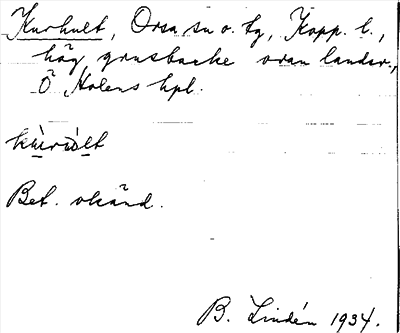 Kurhult, Orsa sn o. tg, Kopp. l.,
hög grusbacke ovan landsv.,
Ö Holens hpl.
kùrùlt
Bet. okänd.
B. Lindén 1934.